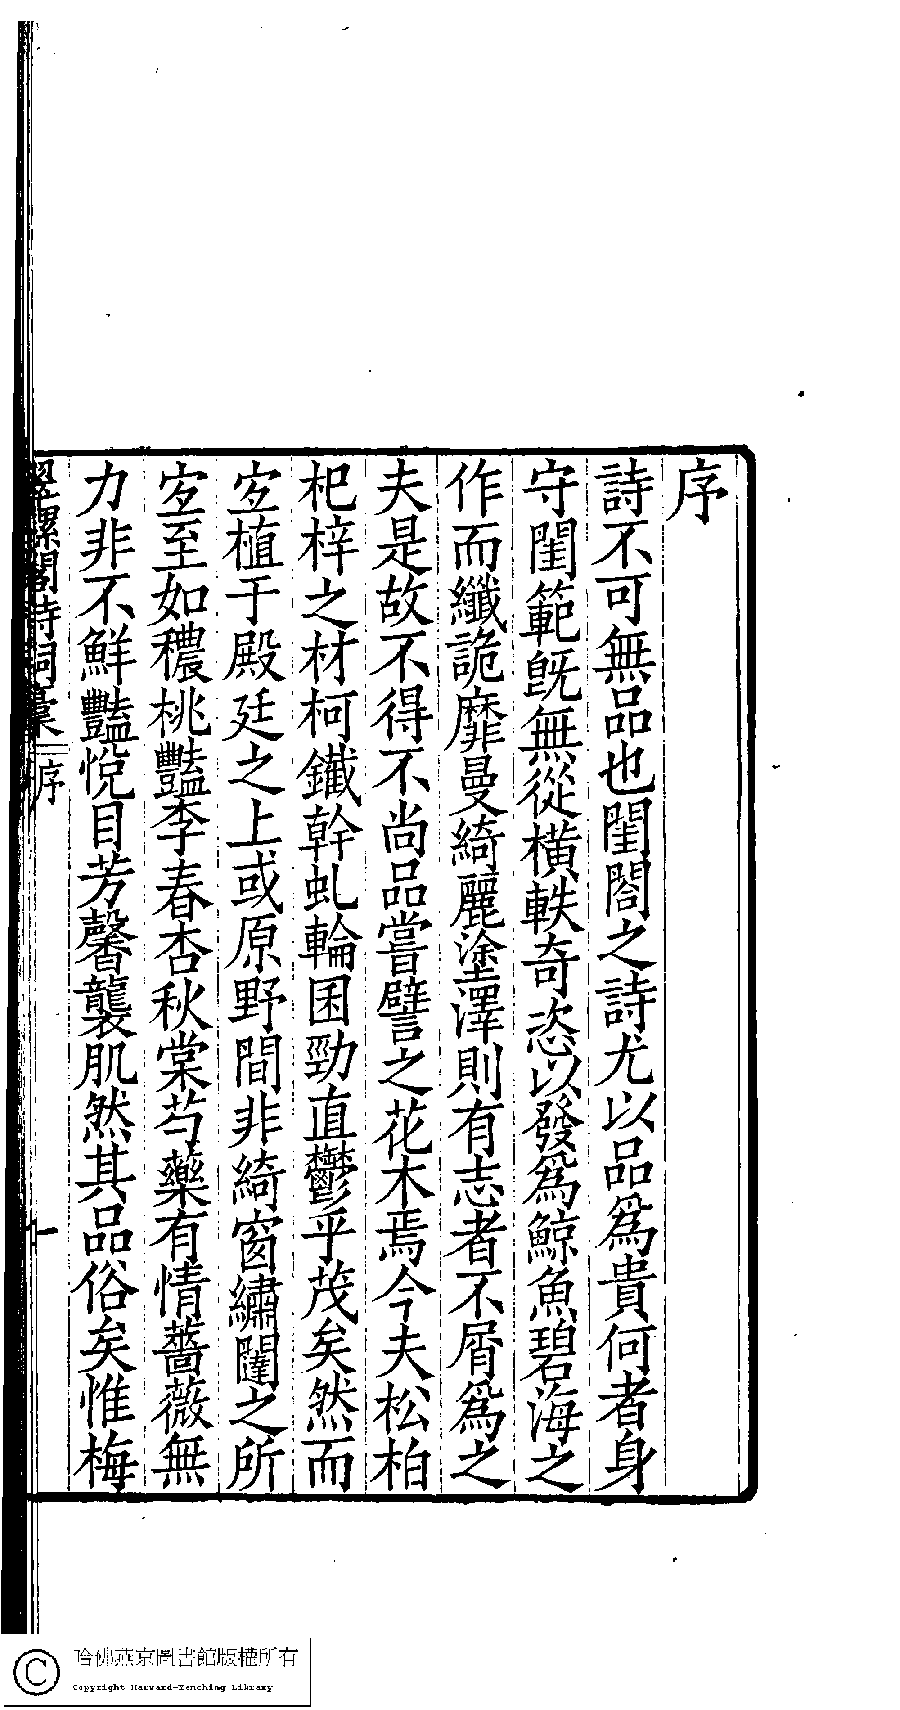 序
詩不可無品也閨閤之詩尤以品為貴何者身
守閨範旣無從橫軼奇恣以發為鯨魚碧海之
作而纖詭靡曼綺麗塗澤則有志者不屑為之
夫是故不得不尚品嘗譬之花木焉今夫松柏
杞梓之材柯鐵幹虬輪囷勁直鬱乎茂矣然而
宐植于殿廷之上或原野間非綺窗繡闥之所
宐至如穠桃豔李春杏秋棠芍藥有情薔薇無
力非不鮮豔悅目芳馨襲肌然其品俗矣惟梅
翠螺閣詩詞稾
序
一
哈佛燕京圖書館版權所有
Copyright Harvard-Yenching Library